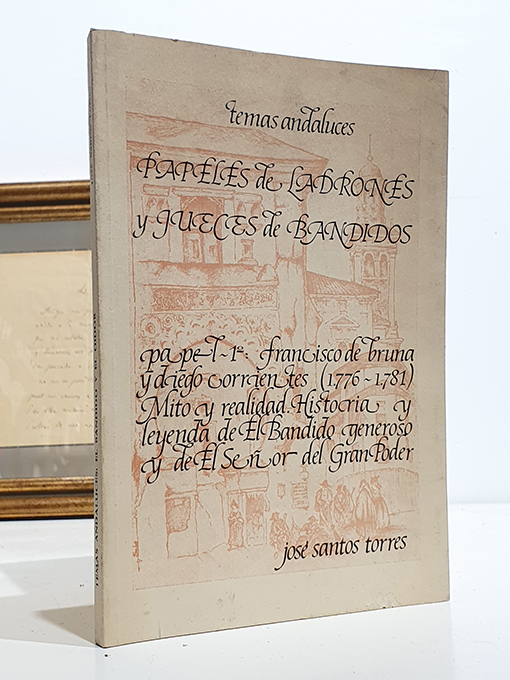 temas andaluces
PAPELES de LADRONES
y JUECES de BANDIDOS
papel~1º: francisco de bruna
y diego corrientes (1.776~1.781)
Mito y realidad. Historia y
leyenda de El Bandido generoso
y de El Señor del Gran Poder
josé santos torres